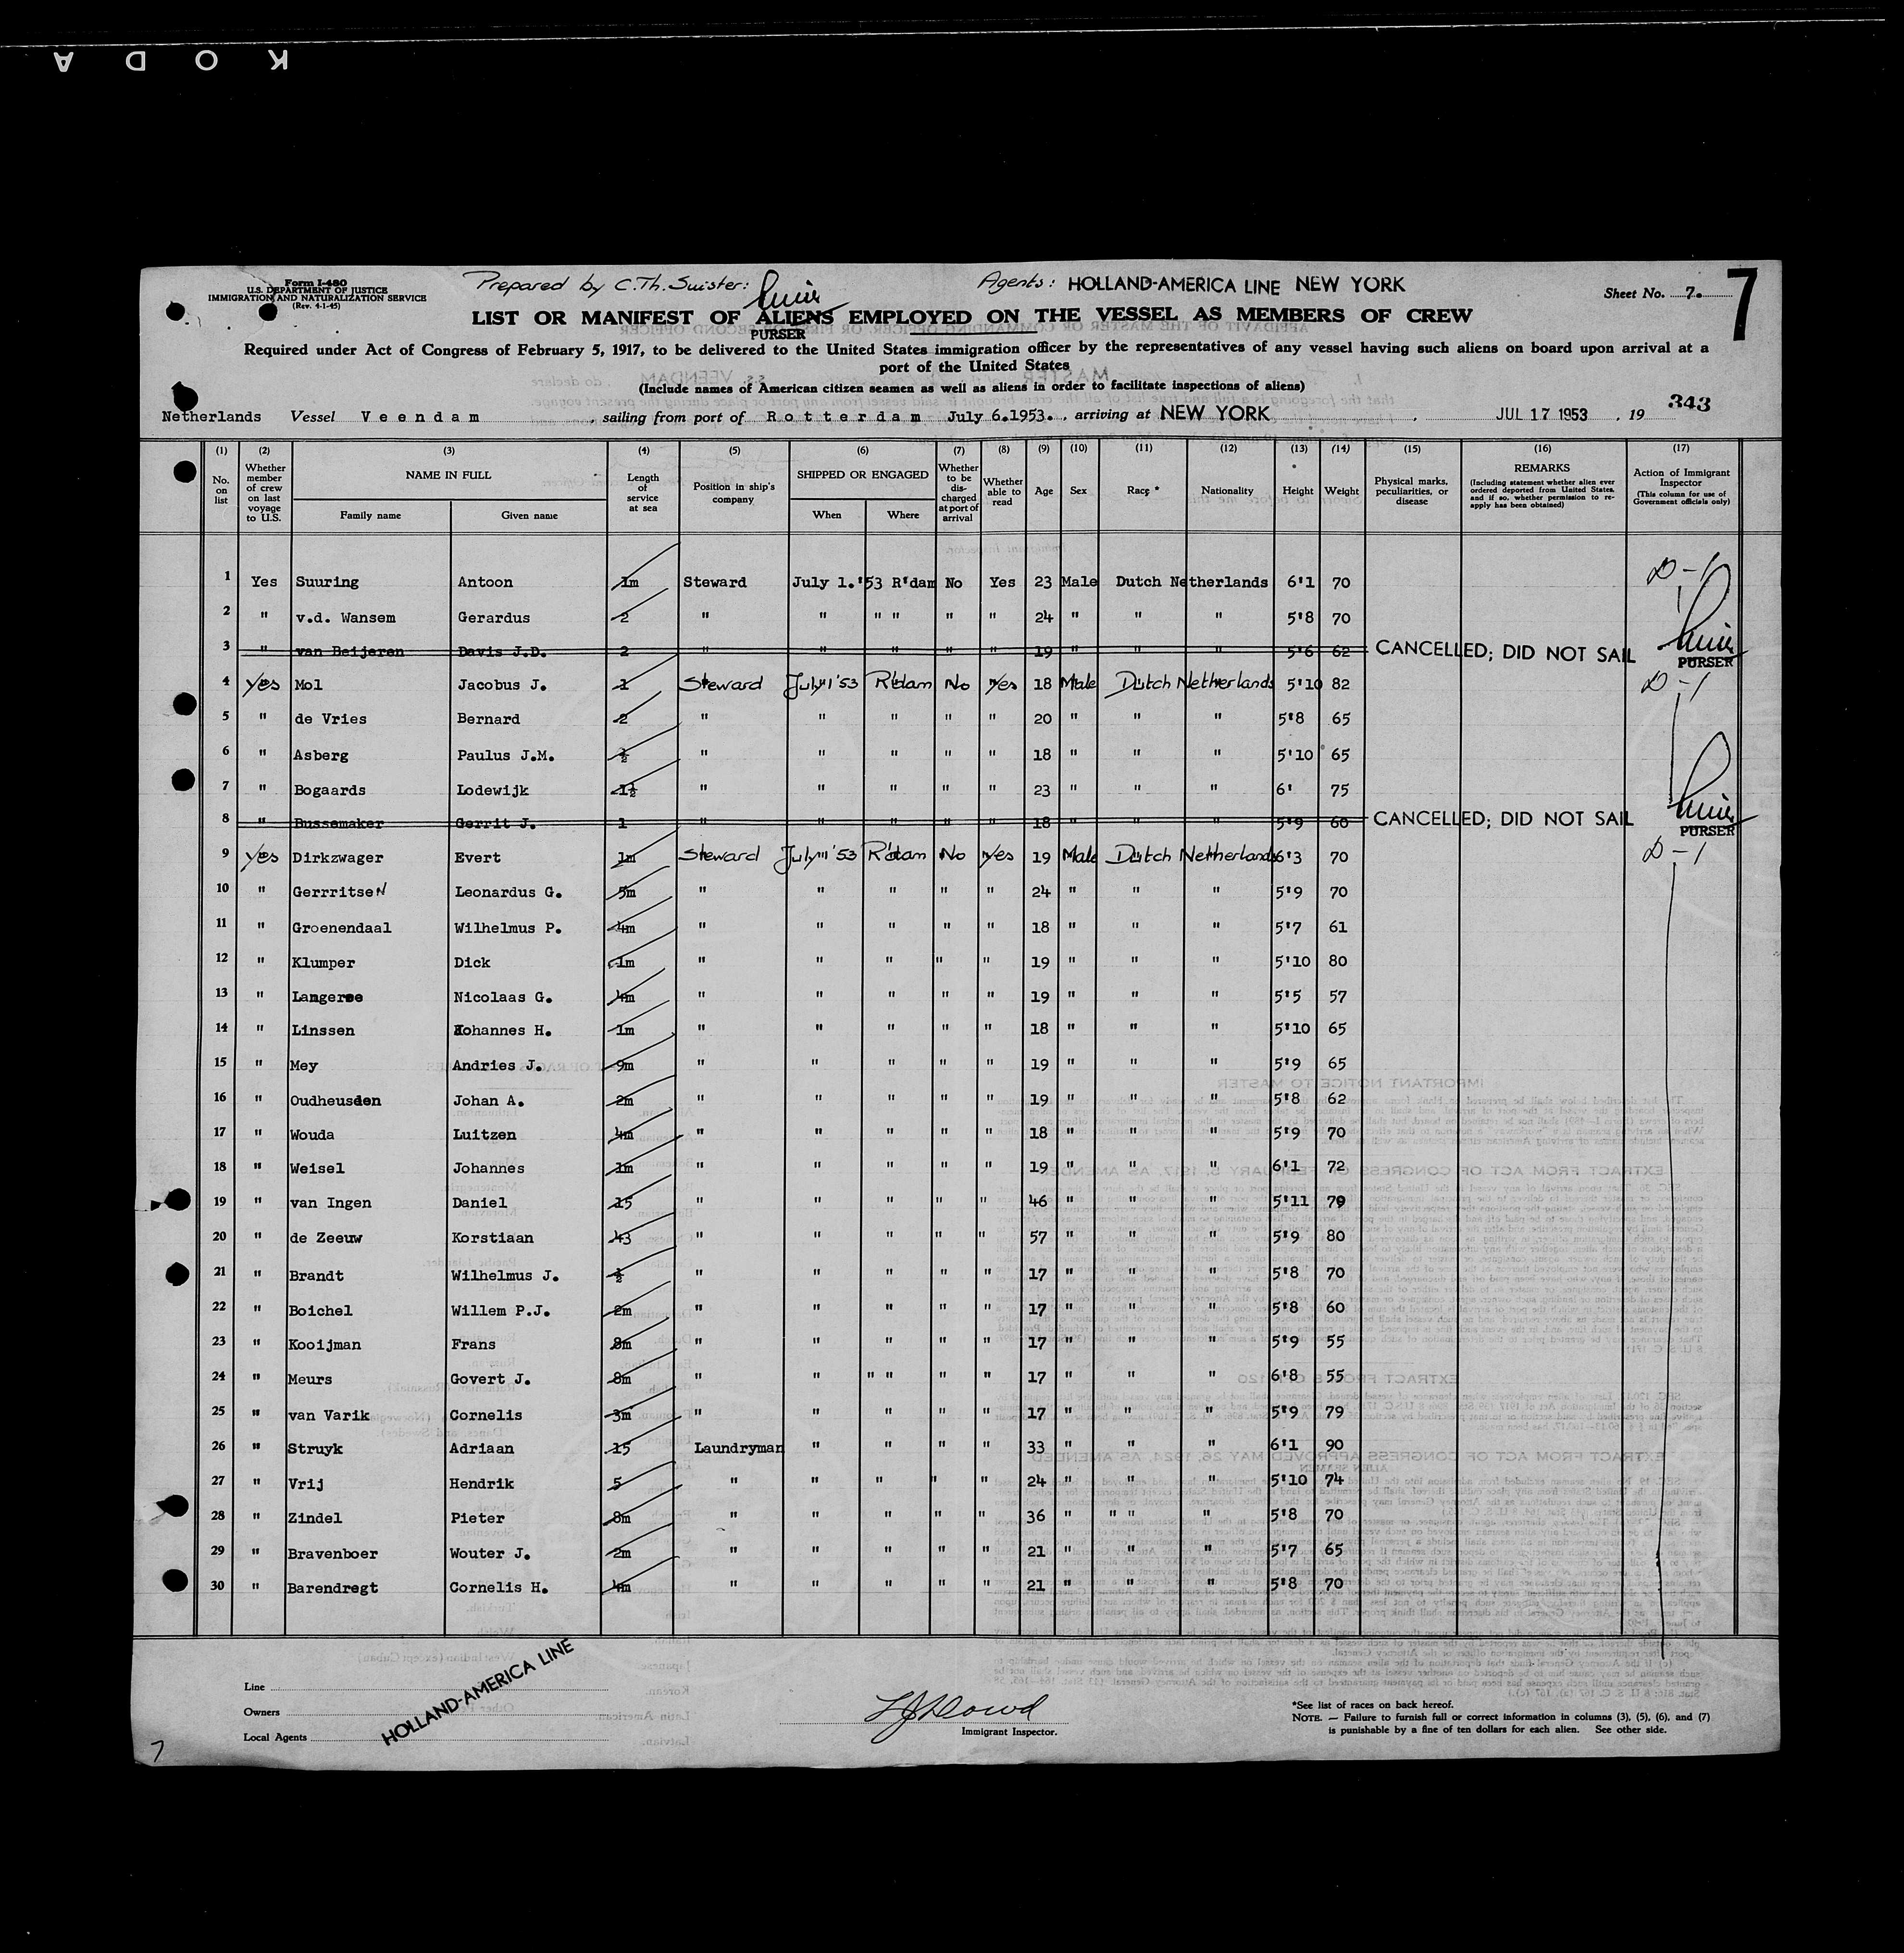 KODA
Form I-480
U.S. DEPARTMENT OF JUSTICE
IMMIGRATION AND NATURALIZATION SERVICE
(Rev. 4-1-45)
Prepared by C.Th. Suister:
PURSER
Agents: HOLLAND-AMERICA LINE NEW YORK
Sheet No. 7.
7
LIST OR MANIFEST OF ALIENS EMPLOYED ON THE VESSEL AS MEMBERS OF CREW
Required under Act of Congress of February 5, 1917, to be delivered to the United States immigration officer by the representatives of any vessel having such aliens on board upon arrival at a
port of the United States
(Include names of American citizen seamen as well as aliens in order to facilitate inspections of aliens)
Netherlands Vessel Veendam, sailing from port of Rotterdam July 6.1953., arriving at NEW YORK, JUL 17 1953, 19 343
(1) No. on list (2) Whether member of crew on last voyage to U.S. (3) NAME IN FULL Family name Given name (4) Length of service at sea (5) Position in ship's company (6) SHIPPED OR ENGAGED When Where (7) Whether to be discharged at port of arrival (8) Whether able to read (9) Age (10) Sex (11) Race * (12) Nationality (13) Height (14) Weight (15) Physical marks, peculiarities, or disease (16) REMARKS (Including statement whether alien ever ordered deported from United States, and if so, whether permission to reapply has been obtained) (17) Action of Immigrant Inspector (This column for use of Government officials only)
1 Yes Suuring Antoon 1m Steward July 1.'53 R'dam No Yes 23 Male Dutch Netherlands 6'1 70 D-1
2 " v.d. Wansem Gerardus 2 " " " " " " 24 " " " 5'8 70
3 " van Beijeren Davis J.D. 2 " " " " " 19 " " " 5'6 62 CANCELLED; DID NOT SAIL PURSER
4 Yes Mol Jacobus J. 1 Steward July 1 '53 R'dam No Yes 18 Male Dutch Netherlands 5'10 82 D-1
5 " de Vries Bernard 2 " " " " " 20 " " " 5'8 65
6 " Asberg Paulus J.M. ½ " " " " " 18 " " " 5'10 65
7 " Bogaards Lodewijk 1½ " " " " " 23 " " " 6' 75
8 " Bussemaker Gerrit J. 1 " " " " " 18 " " " 5'9 60 CANCELLED; DID NOT SAIL PURSER
9 Yes Dirkzwager Evert 1m Steward July 1 '53 R'dam No Yes 19 Male Dutch Netherlands 6'3 70 D-1
10 " Gerrritsen Leonardus G. 5m " " " " " 24 " " " 5'9 70
11 " Groenendaal Wilhelmus P. 4m " " " " " 18 " " " 5'7 61
12 " Klumper Dick 1m " " " " " 19 " " " 5'10 80
13 " Langerse Nicolaas G. 4m " " " " " 19 " " " 5'5 57
14 " Linssen Johannes H. 1m " " " " " 18 " " " 5'10 65
15 " Mey Andries J. 9m " " " " " 19 " " " 5'9 65
16 " Oudheusden Johan A. 2m " " " " " 19 " " " 5'8 62
17 " Wouda Luitzen 4m " " " " " 18 " " " 5'9 70
18 " Weisel Johannes 1m " " " " " 19 " " " 6'1 72
19 " van Ingen Daniel 15 " " " " " 46 " " " 5'11 79
20 " de Zeeuw Korstiaan 43 " " " " " 57 " " " 5'9 80
21 " Brandt Wilhelmus J. ½ " " " " " 17 " " " 5'8 70
22 " Boichel Willem P.J. 2m " " " " " 17 " " " 5'8 60
23 " Kooijman Frans 8m " " " " " 17 " " " 5'9 55
24 " Meurs Govert J. 8m " " " " " " 17 " " " 6'8 55
25 " van Varik Cornelis 3m " " " " " 17 " " " 5'9 79
26 " Struyk Adriaan 15 Laundryman " " " " 33 " " " 6'1 90
27 " Vrij Hendrik 5 " " " " " 24 " " " 5'10 74
28 " Zindel Pieter 8m " " " " " 36 " " " " 5'8 70
29 " Bravenboer Wouter J. 2m " " " " " 21 " " " 5'7 65
30 " Barendregt Cornelis H. 4m " " " " " 21 " " " 5'8 70
Line
Owners
Local Agents
HOLLAND-AMERICA LINE
Immigrant Inspector.
*See list of races on back hereof.
NOTE. — Failure to furnish full or correct information in columns (3), (5), (6), and (7)
is punishable by a fine of ten dollars for each alien. See other side.
7